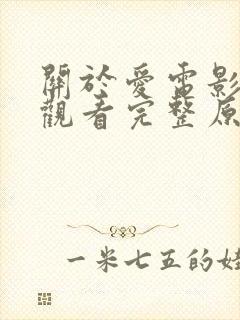 關於愛電影
觀看完整原
一米七五的娃